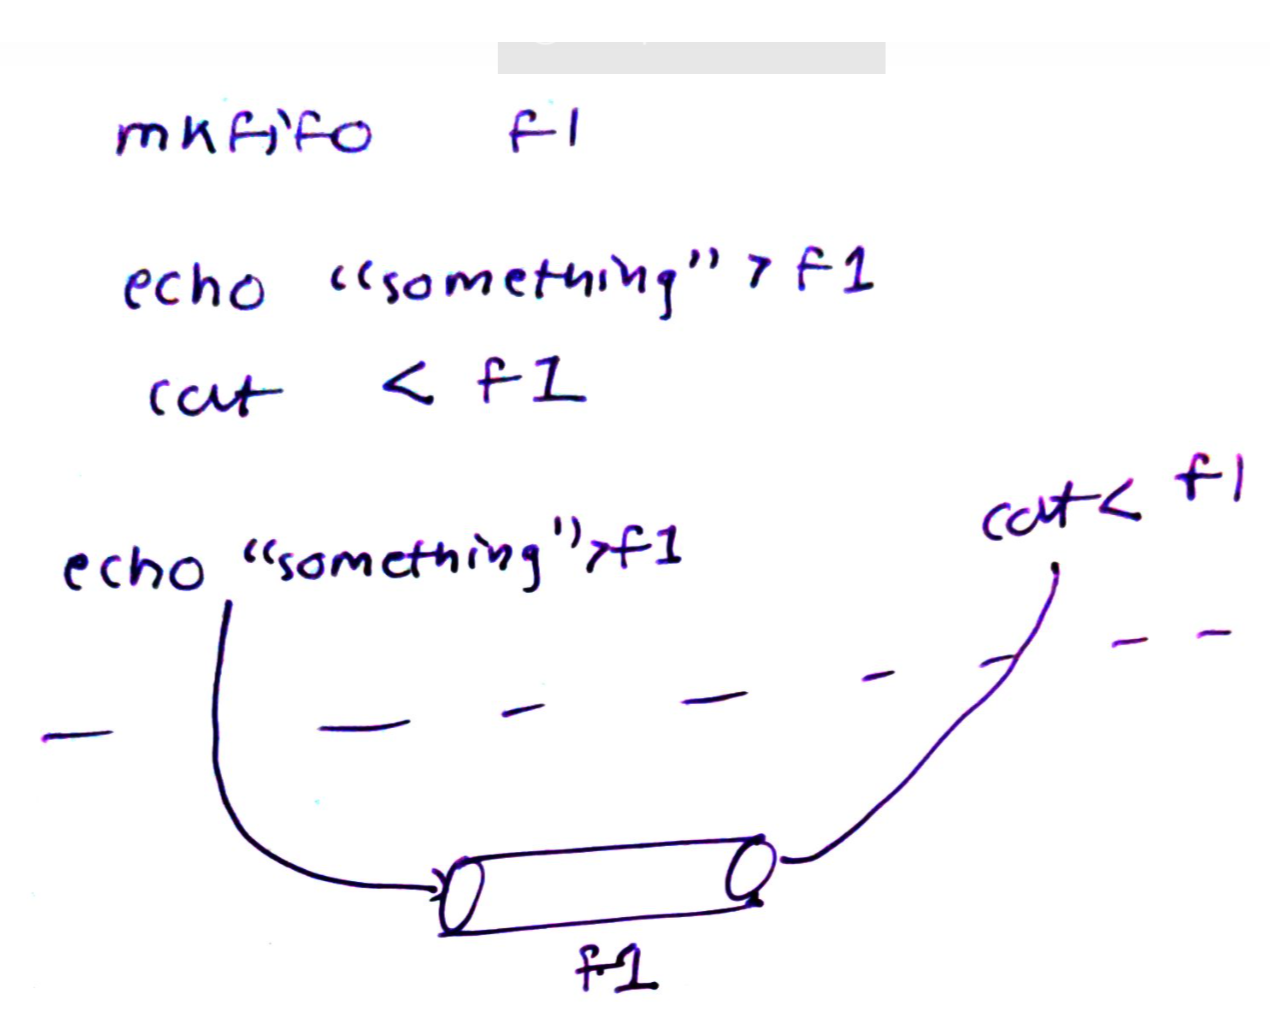 mkfifo f1
echo "something" > f1
cat < f1
cat < f1
echo "something" > f1
f1